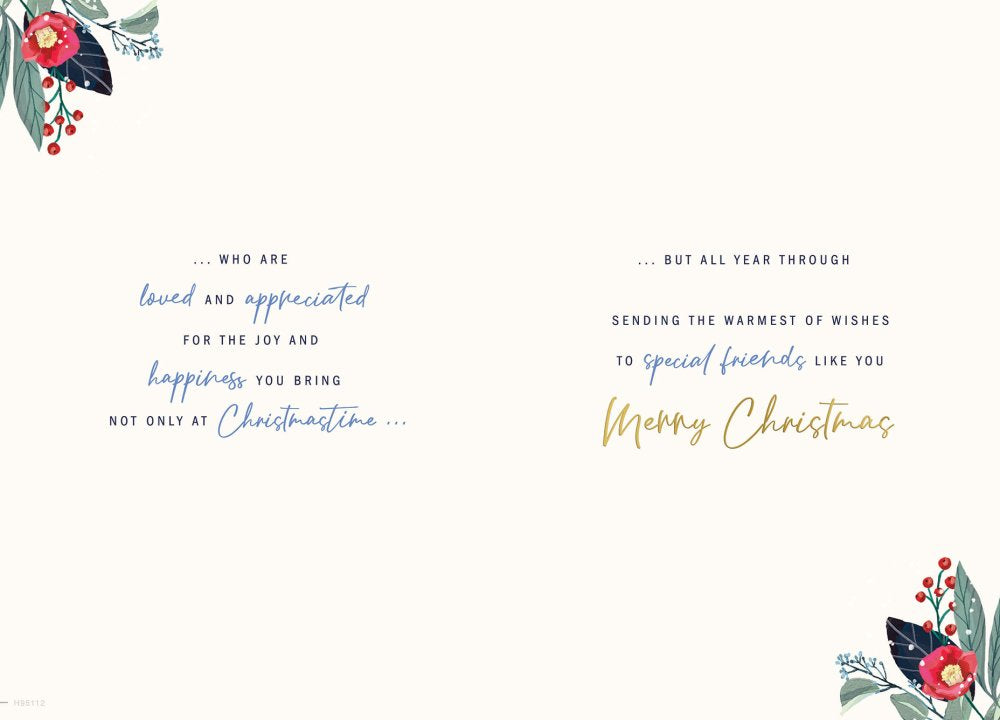 ... WHO ARE
loved AND appreciated
FOR THE JOY AND
happiness YOU BRING
NOT ONLY AT Christmastime ...
... BUT ALL YEAR THROUGH
SENDING THE WARMEST OF WISHES
TO special friends LIKE YOU
Merry Christmas
H95112